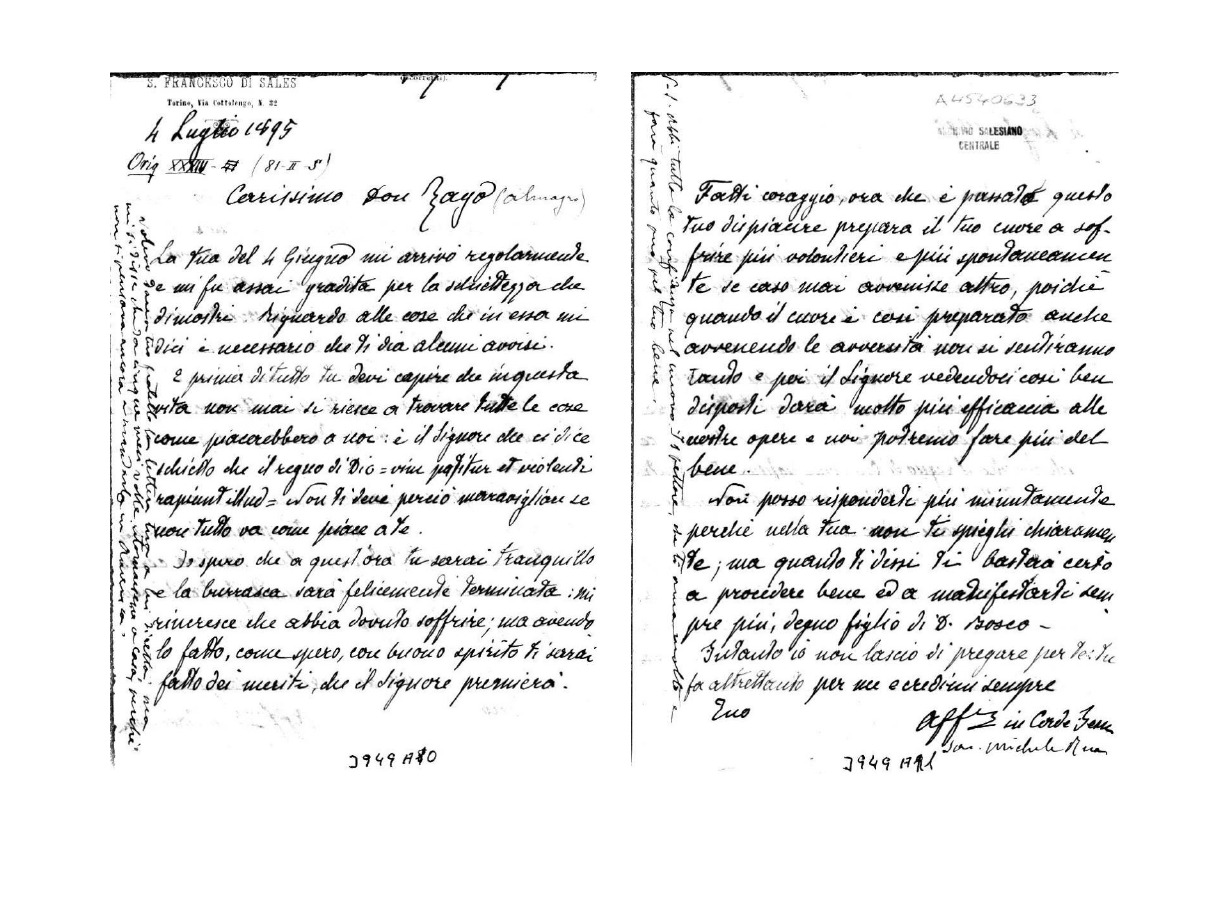 S. FRANCESCO DI SALES
Torino, Via Cottolengo, N. 32
4 Luglio 1895
Orig XXXIV (81-II-5)
Carissimo Don Zago (Almagro)
La tua del 4 Giugno mi arrivò regolarmente
e mi fu assai gradita per la schiettezza che
dimostri. Riguardo alle cose che in essa mi
dici è necessario che ti dia alcuni avvisi.
E prima di tutto tu devi capire che in questa
vita non mai si riesce a trovare tutte le cose
come piacerebbero a noi: è il Signore che ci dice
schietto che il regno di Dio = vim patitur et violenti
rapiunt illud = Non ti devi perciò maravigliare se
non tutto va come piace a te.
Io spero che a quest'ora tu sarai tranquillo
e la burrasca sarà felicemente terminata: mi
rincresce che abbia dovuto soffrire; ma avendo
lo fatto, come spero, con buono spirito ti sarai
fatto dei meriti, che il Signore premierà.
tuo fratello la lettera tua a lui diretta, ma
mi si disse che da cinque mesi volle ritornarsene a casa, perchè
non si pensava ancora
J949 A80
A4540633
SALESIANO
CENTRALE
Fatti coraggio, ora che è passato questo
tuo dispiacere prepara il tuo cuore a sof-
frire più volontieri e più spontaneamen
te se caso mai avvenisse altro, poichè
quando il cuore è così preparato anche
avvenendo le avversità non si sentiranno
tanto e poi il Signore vedendoci così ben
disposti darà molto più efficacia alle
nostre opere e noi potremo fare più del
bene.
Non posso risponderti più minutamente
perchè nella tua non ti spieghi chiaramen
te; ma quanto ti dissi ti basterà certo
a procedere bene ed a manifestarti sem
pre più, degno figlio di D. Bosco -
Intanto io non lascio di pregare per te: tu
fa altrettanto per me e credimi sempre
Tuo
Aff in Corde Jesu
Sac. Michele Rua
P.S. Abbi tutta la confidenza nel nuovo Ispettore, che ti ama molto e
farà quanto può pel tuo bene.
J949 A81